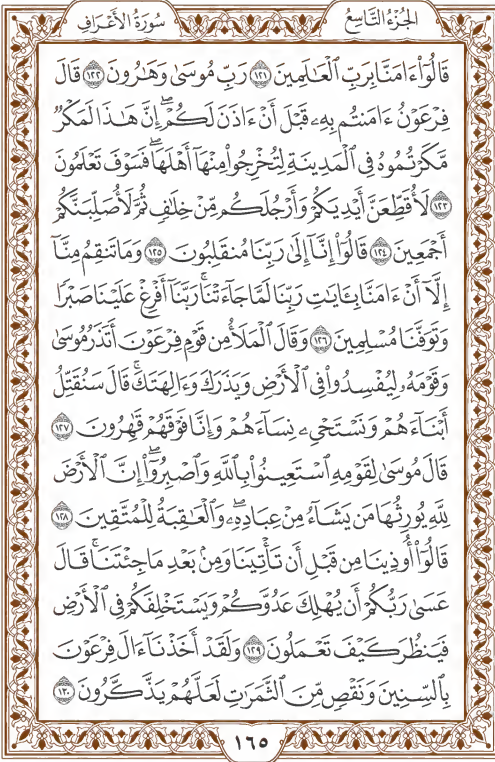 الجُزْءُ التَّاسِعُ سُورَةُ الأَعْرَافِ
قَالُوٓاْ ءَامَنَّا بِرَبِّ ٱلْعَٰلَمِينَ ١٢١ رَبِّ مُوسَىٰ وَهَٰرُونَ ١٢٢ قَالَ
فِرْعَوْنُ ءَامَنتُم بِهِۦ قَبْلَ أَنْ ءَاذَنَ لَكُمْۖ إِنَّ هَٰذَا لَمَكْرٌ
مَّكَرْتُمُوهُ فِي ٱلْمَدِينَةِ لِتُخْرِجُواْ مِنْهَآ أَهْلَهَاۖ فَسَوْفَ تَعْلَمُونَ
١٢٣ لَأُقَطِّعَنَّ أَيْدِيَكُمْ وَأَرْجُلَكُم مِّنْ خِلَٰفٍ ثُمَّ لَأُصَلِّبَنَّكُمْ
أَجْمَعِينَ ١٢٤ قَالُوٓاْ إِنَّآ إِلَىٰ رَبِّنَا مُنقَلِبُونَ ١٢٥ وَمَا تَنقِمُ مِنَّآ
إِلَّآ أَنْ ءَامَنَّا بِـَٔايَٰتِ رَبِّنَا لَمَّا جَآءَتْنَاۚ رَبَّنَآ أَفْرِغْ عَلَيْنَا صَبْرًا
وَتَوَفَّنَا مُسْلِمِينَ ١٢٦ وَقَالَ ٱلْمَلَأُ مِن قَوْمِ فِرْعَوْنَ أَتَذَرُ مُوسَىٰ
وَقَوْمَهُۥ لِيُفْسِدُواْ فِي ٱلْأَرْضِ وَيَذَرَكَ وَءَالِهَتَكَۚ قَالَ سَنُقَتِّلُ
أَبْنَآءَهُمْ وَنَسْتَحْيِۦ نِسَآءَهُمْ وَإِنَّا فَوْقَهُمْ قَٰهِرُونَ ١٢٧
قَالَ مُوسَىٰ لِقَوْمِهِ ٱسْتَعِينُواْ بِٱللَّهِ وَٱصْبِرُوٓاْۖ إِنَّ ٱلْأَرْضَ
لِلَّهِ يُورِثُهَا مَن يَشَآءُ مِنْ عِبَادِهِۦۖ وَٱلْعَٰقِبَةُ لِلْمُتَّقِينَ ١٢٨
قَالُوٓاْ أُوذِينَا مِن قَبْلِ أَن تَأْتِيَنَا وَمِنۢ بَعْدِ مَا جِئْتَنَاۚ قَالَ
عَسَىٰ رَبُّكُمْ أَن يُهْلِكَ عَدُوَّكُمْ وَيَسْتَخْلِفَكُمْ فِي ٱلْأَرْضِ
فَيَنظُرَ كَيْفَ تَعْمَلُونَ ١٢٩ وَلَقَدْ أَخَذْنَآ ءَالَ فِرْعَوْنَ
بِٱلسِّنِينَ وَنَقْصٍ مِّنَ ٱلثَّمَرَٰتِ لَعَلَّهُمْ يَذَّكَّرُونَ ١٣٠
١٦٥